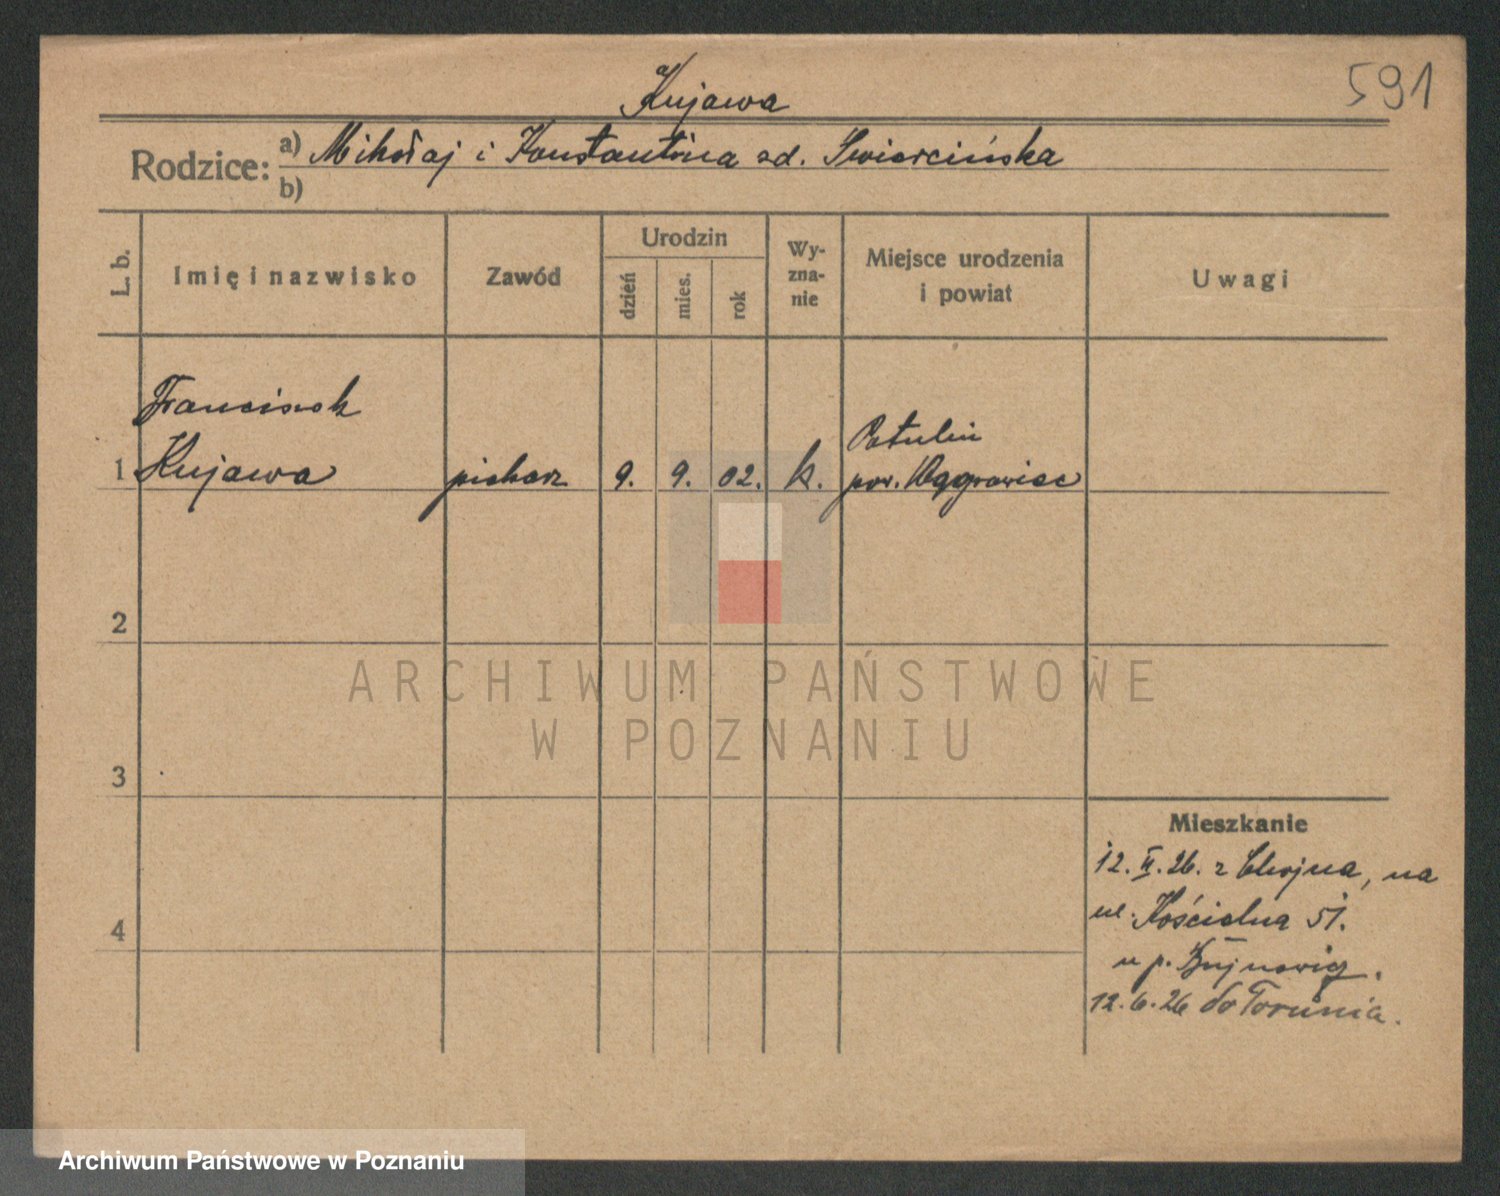 591
Kujawa
Rodzice: a) Mikołaj i Konstantina zd. Świercińska
b)
L. b.
Imię i nazwisko
Zawód
Urodzin
dzień
mies.
rok
Wy-
zna-
nie
Miejsce urodzenia
i powiat
Uwagi
Franciszek
1 Kujawa
piekarz
9. 9. 02.
k.
Potulin
pow. Wągrowiec
2
3
4
Mieszkanie
12. II. 26. z Chojna, na
ul. Kościelna 51.
u p.
12. 6. 26 do Torunia.
ARCHIWUM PAŃSTWOWE
W POZNANIU
Archiwum Państwowe w Poznaniu